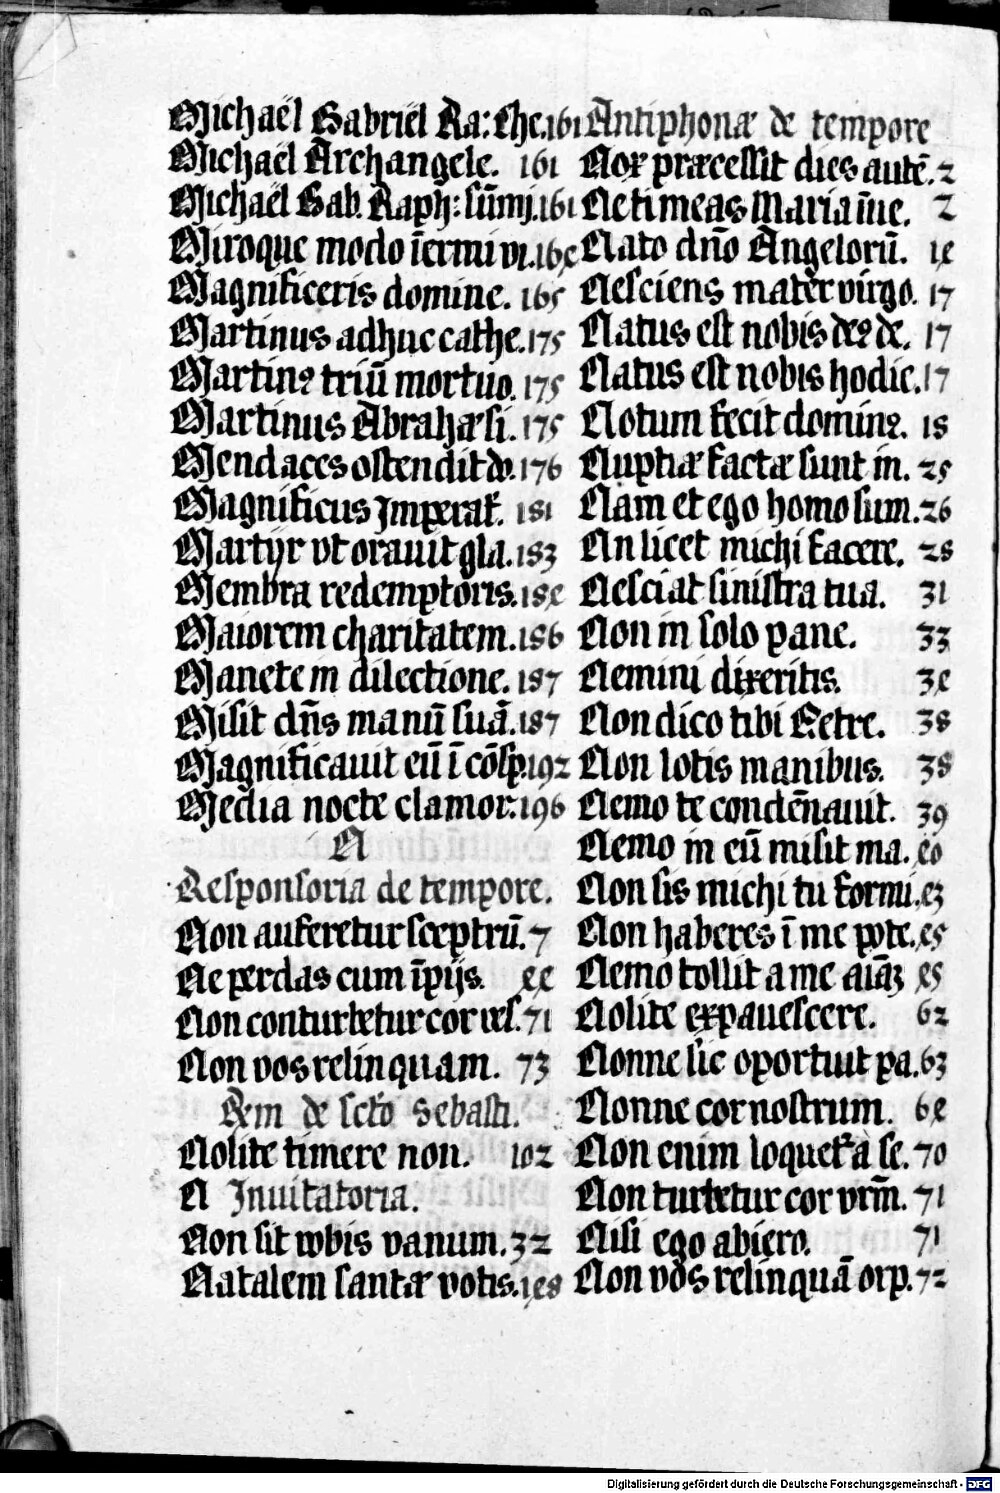 Michaël Gabriël Ra: Che. 161
Michaël Archangele. 161
Michaël Gab. Raph: sūmj. 161
Miroque modo īermi vi. 164
Magnificeris domine. 165
Martinus adhuc cathe. 175
Martinꝰ triū mortuo. 175
Martinus Abrahæ si. 175
Mendaces ostendit do. 176
Magnificus Imperat. 181
Martÿr vt orauit gla. 183
Membra redemptoris. 184
Maiorem charitatem. 186
Manete in dilectione. 187
Misit dn̄s manū suā. 187
Magnificauit eū ī cōsp. 192
Media nocte clamor. 196
N
Responsoria de tempore.
Non auferetur sceptrū. 7
Ne perdas cum īpijs. 44
Non conturbetur cor ves. 71
Non vos relinquam. 73
Rm de scto Sebasti.
Nolite timere non. 102
N Inuitatoria.
Non sit vobis vanum. 32
Natalem santæ votis. 148
Antiphonæ de tempore
Nox præcessit dies autē. 2
Ne timeas Maria īue. 2
Nato dn̄o Angelorū. 14
Nesciens mater virgo. 17
Natus est nobis deꝰ de. 17
Natus est nobis hodie. 17
Notum fecit dominꝰ. 18
Nuptiæ factæ sunt in. 25
Nam et ego homo sum. 26
An licet michi facere. 28
Nesciat sinistra tua. 31
Non in solo pane. 33
Nemini dixeritis. 34
Non dico tibi Petre. 38
Non lotis manibus. 38
Nemo te condēnauit. 39
Nemo in eū misit ma. 40
Non sis michi tu formi. 43
Non haberes ī me pote. 45
Nemo tollit a me aīaȝ 45
Nolite expauescere. 62
Nonne sic oportuit pa. 63
Nonne cor nostrum. 64
Non enim loquet̄ a se. 70
Non turbetur cor vrm̄. 71
Nisi ego abiero. 71
Non vos relinquā orp. 72
Digitalisierung gefördert durch die Deutsche Forschungsgemeinschaft - DFG